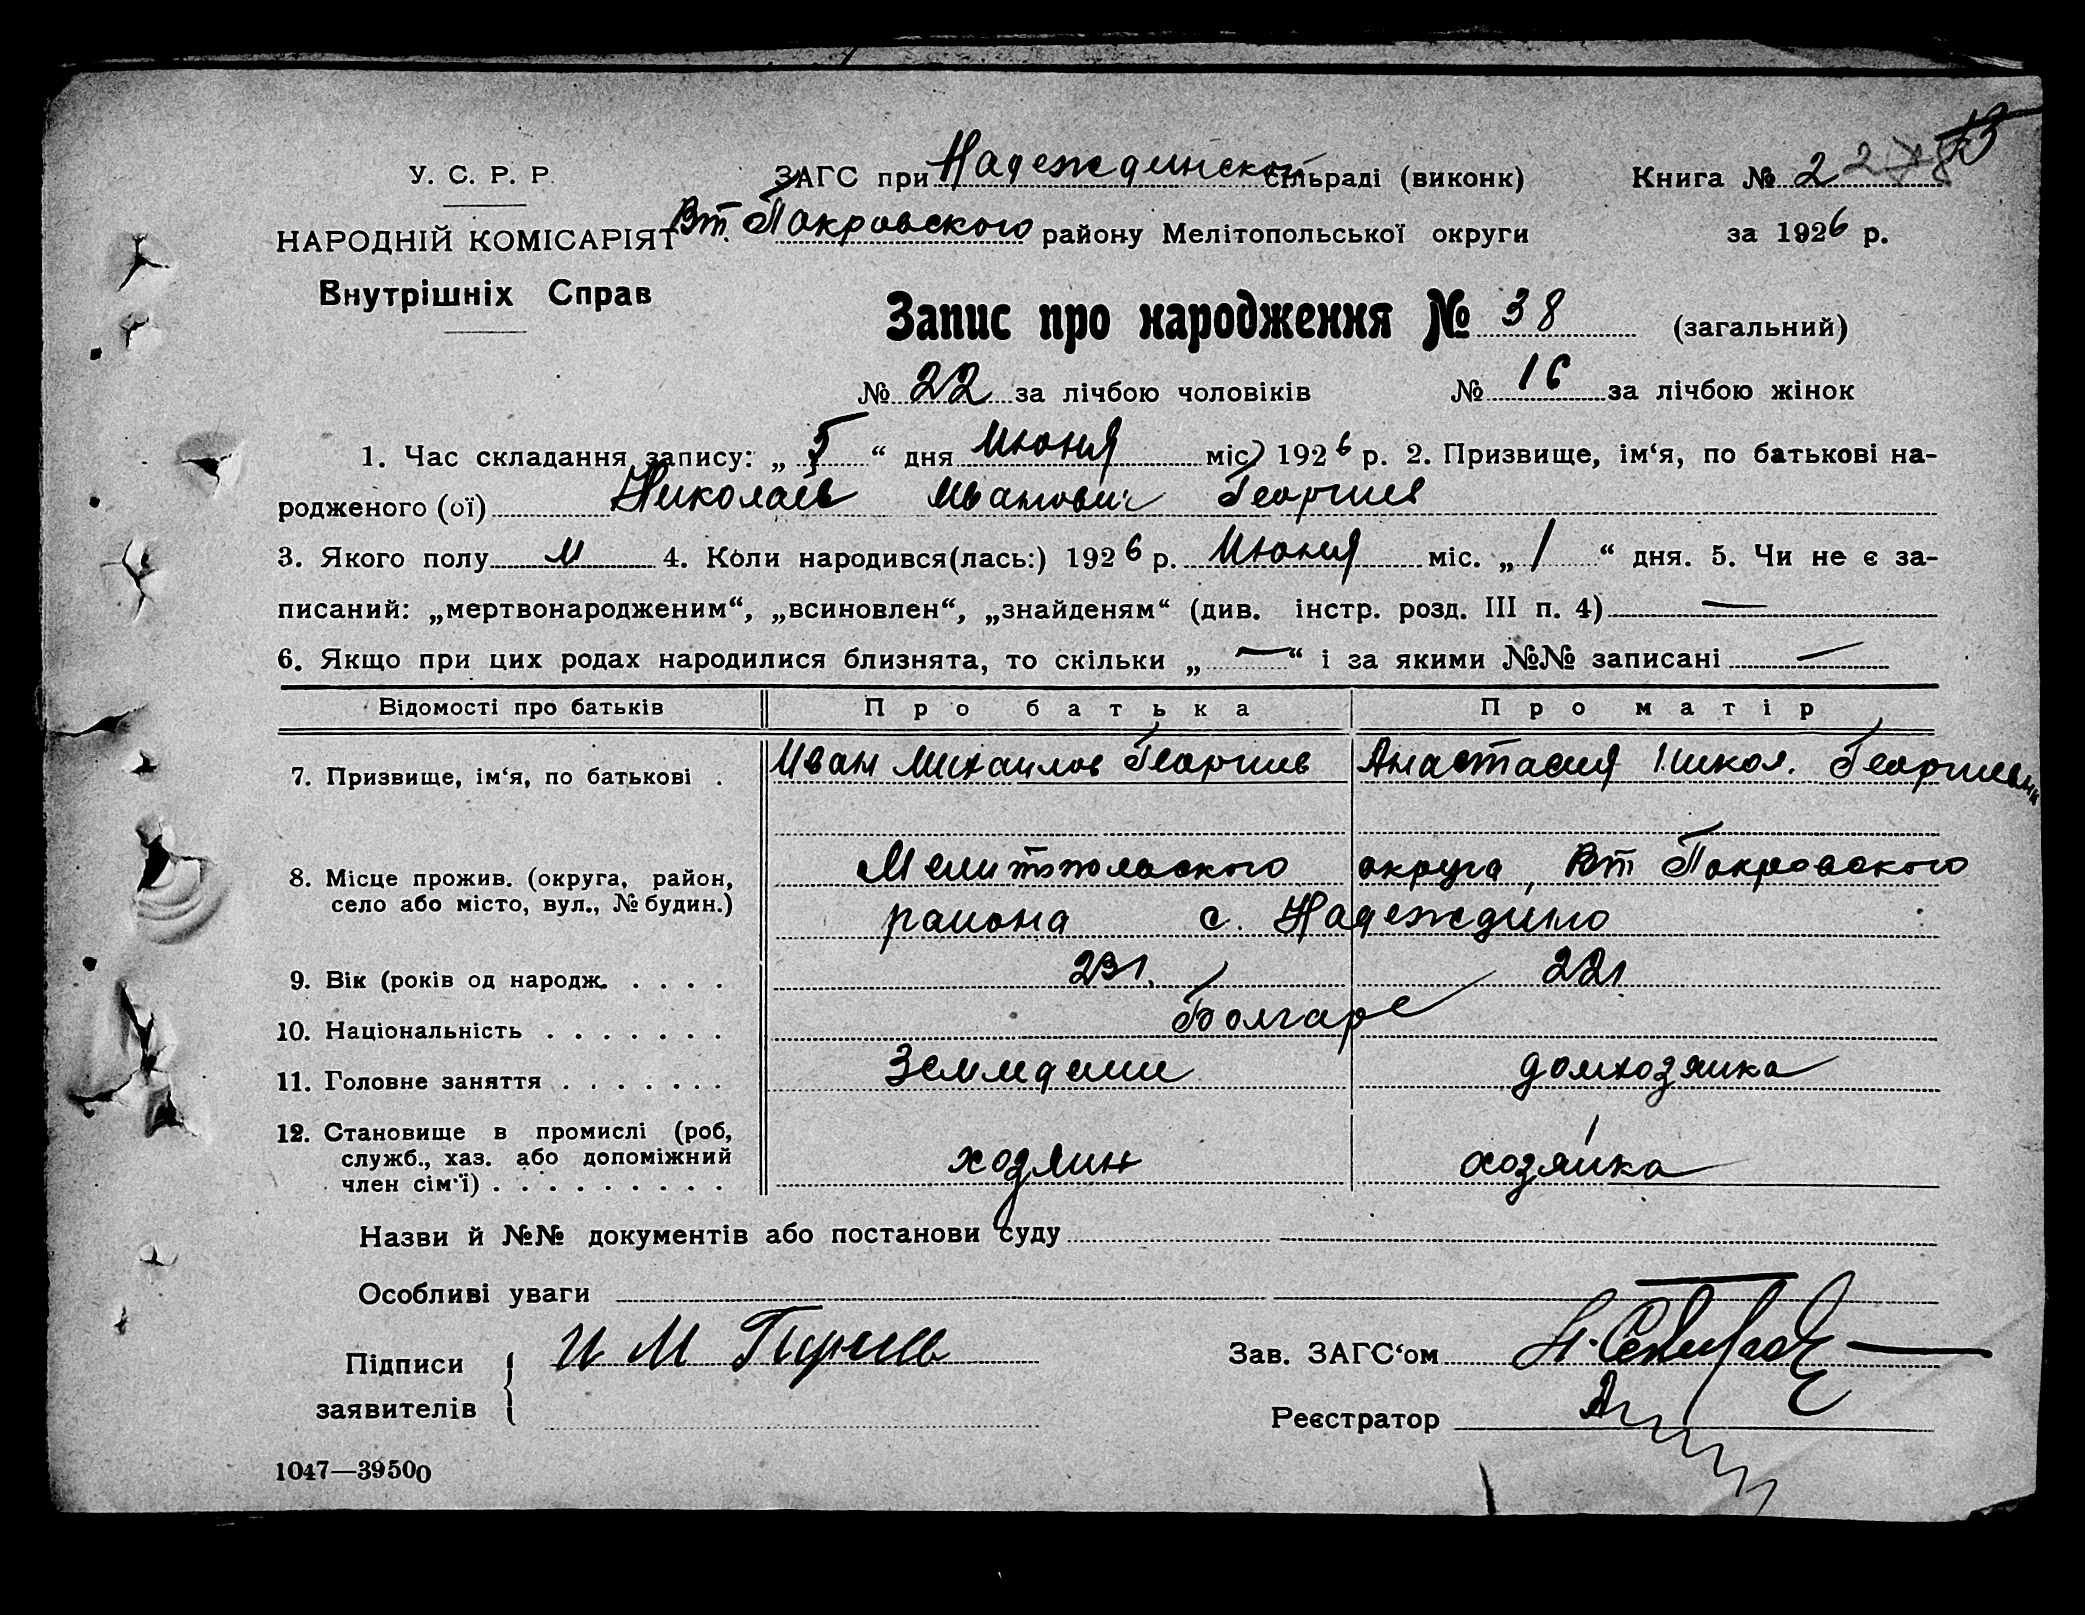 У. С. Р. Р. ЗАГС при Надеждинской сільраді (виконк) Книга № 2
НАРОДНІЙ КОМІСАРІЯТ Вт. Покровского району Мелітопольської округи за 1926 р.
Внутрішніх Справ
Запис про народження № 38 (загальний)
№ 22 за лічбою чоловіків № 16 за лічбою жінок
1. Час складання запису: „ 5 “ дня Июня міс) 1926 р. 2. Призвище, ім‘я, по батькові на-
родженого (ої) Николаев Иванович Георгиев
3. Якого полу м 4. Коли народився(лась:) 1926 р. Июня міс. „ 1 “ дня. 5. Чи не є за-
писаний: „мертвонародженим“, „всиновлен“, „знайденям“ (див. інстр. розд. III п. 4) —
6. Якщо при цих родах народилися близнята, то скільки „ — “ і за якими №№ записані —
Відомості про батьків Про батька Про матір
7. Призвище, ім‘я, по батькові . Иван Михаилов Георгиев Анастасия Никол. Георгиевна
8. Місце прожив. (округа, район, Мелитопольского округа, Вт Покровского
село або місто, вул., № будин.) района с. Надеждино
9. Вік (років од народж. . . . . 23 г. 22 г
10. Національність . . . . . . . Болгаре
11. Головне заняття . . . . . . . Земледелие домхозяика
12. Становище в промислі (роб,
служб., хаз. або допоміжний хозяин хозяика
член сім‘ї) . . . . . . . . .
Назви й №№ документів або постанови суду
Особливі уваги
Підписи И М Зав. ЗАГС‘ом
заявителів Реєстратор
1047—39500